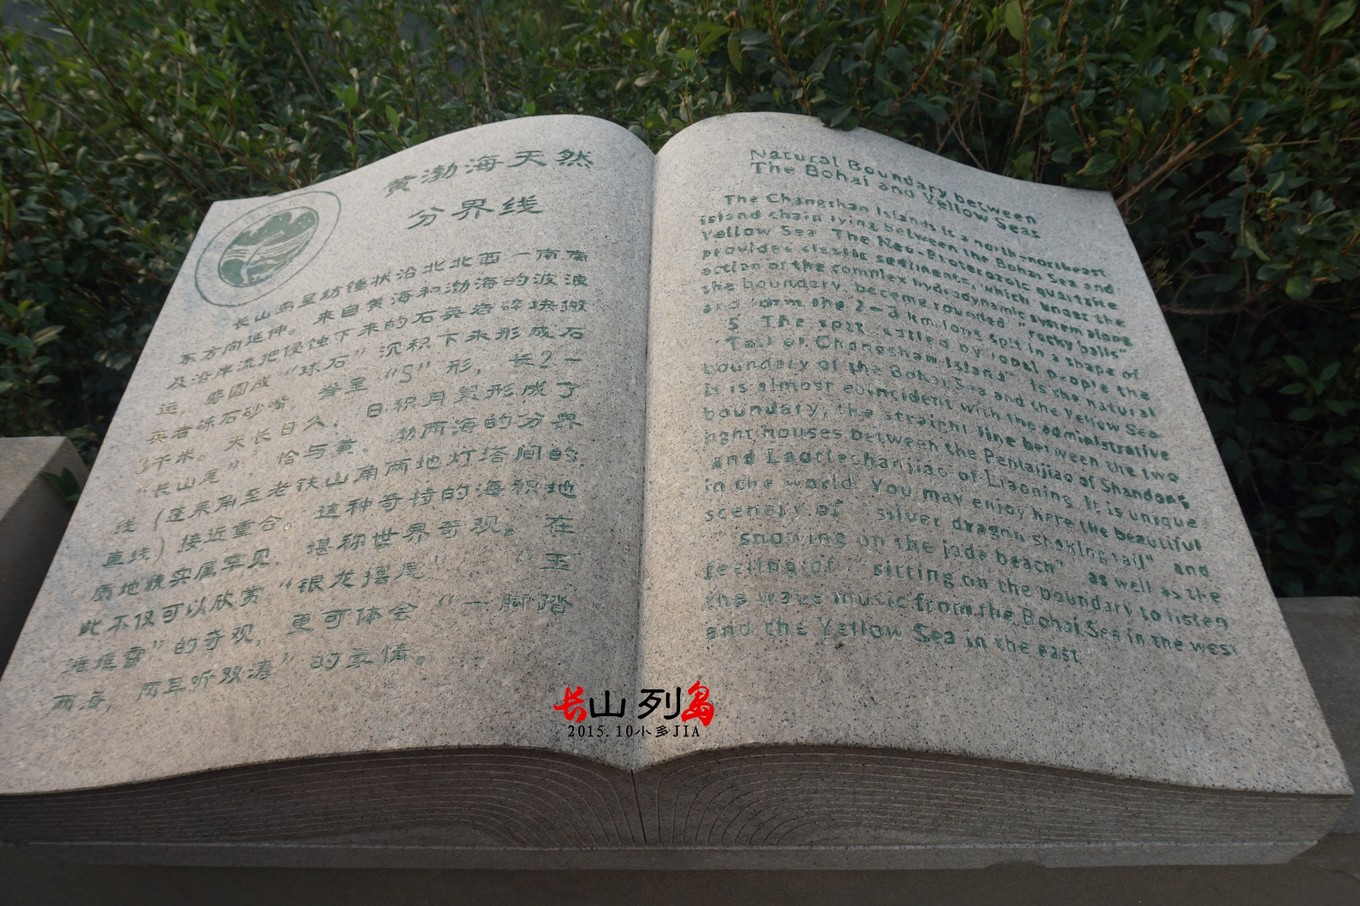 黄渤海天然
分界线
长山岛呈纺锤状沿北北西一南南
东方向延伸。来自黄海和渤海的波浪
及沿岸流把侵蚀下来的石英岩碎块搬
运，磨圆成“球石”沉积下来形成石
英岩砾石砂嘴，脊呈“S”形，长2一
3千米。天长日久，日积月累形成了
“长山尾”，恰与黄、渤两海的分界
线（蓬莱角至老铁山角两地灯塔间的
直线）接近重合。这种奇特的海积地
质地貌实属罕见，堪称世界奇观。在
此不仅可以欣赏“银龙摆尾”、“玉
滩堆雪”的奇观，更可体会“一脚踏
两海，两耳听双涛”的豪情。
Natural Boundary between
The Bohai and Yellow Seas
The Changshan Islands is a north-northeast
island chain lying between the Bohai Sea and
Yellow Sea. The Neo-Proterozoic quartzite
provides clastic sediments, which under the
action of the complex hydrodynamic system along
the boundary become rounded "rocky balls"
and form the 2-3 km long spit in a shape of
S. The spit called by local people the
"Tail of Changshan Island" is the natural
boundary of the Bohai Sea and the Yellow Sea.
It is almost coincident with the administrative
boundary, the straight line between the two
light houses between the Penlaijiao of Shandong
and Laotieshanjiao of Liaoning. It is unique
in the world. You may enjoy here the beautiful
scenery of "silver dragon shaking tail" and
"snowing on the jade beach" as well as the
feeling of "sitting on the boundary to listen
the wave music from the Bohai Sea in the west
and the Yellow Sea in the east
长山列岛
2015.10小多JIA